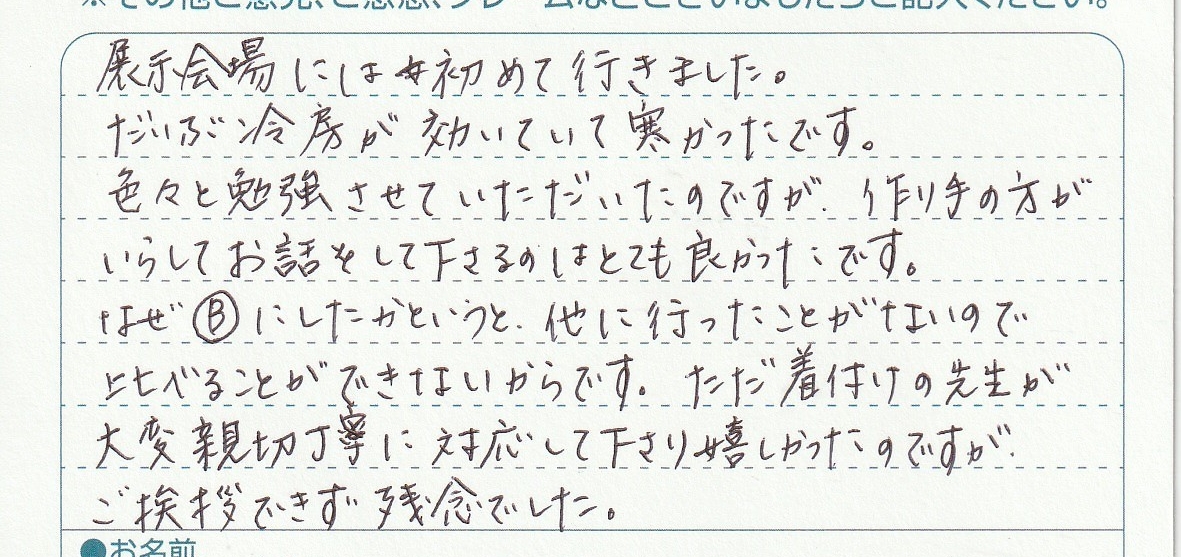 ※その他ご意見、ご感想、クレームなどございましたらご記入ください。
展示会場には初めて行きました。
だいぶ冷房が効いていて寒かったです。
色々と勉強させていただいたのですが、作り手の方が
いらしてお話をして下さるのはとても良かったです。
なぜⒷにしたかというと、他に行ったことがないので
比べることができないからです。ただ着付けの先生が
大変親切丁寧に対応して下さり嬉しかったのですが、
ご挨拶できず残念でした。
●お名前